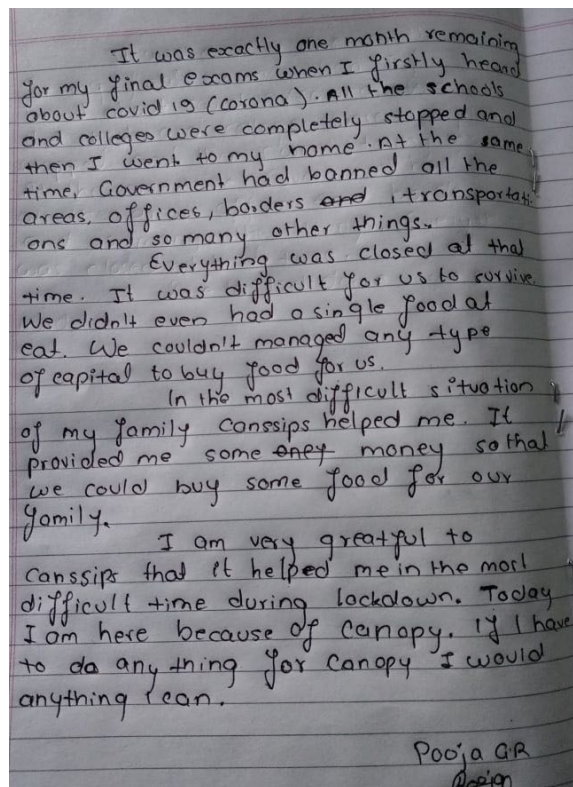 It was exactly one month remaining
for my final exams when I firstly heard
about covid 19 (corona). All the schools
and colleges were completely stopped and
then I went to my home. At the same
time, Government had banned all the
areas, offices, borders and, transportati-
ons and so many other things.
Everything was closed at that
time. It was difficult for us to survive.
We didn't even had a single food at
eat. We couldn't managed any type
of capital to buy food for us.
In the most difficult situation
of my family Canssips helped me. It
provided me some oney money so that
we could buy some food for our
family.
I am very greatful to
Canssips that it helped me in the most
difficult time during lockdown. Today
I am here because of canopy. If I have
to do any thing for canopy I would
anything I can.
Pooja G.R